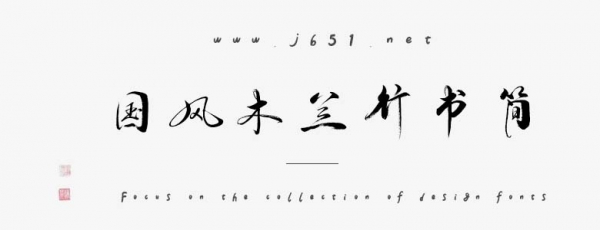 www.j651.net
国风木兰行书简
Focus on the collection of design fonts